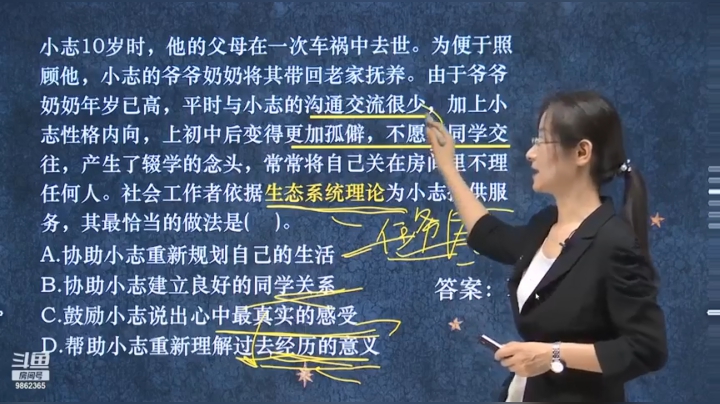 小志10岁时，他的父母在一次车祸中去世。为便于照
顾他，小志的爷爷奶奶将其带回老家抚养。由于爷爷
奶奶年岁已高，平时与小志的沟通交流很少，加上小
志性格内向，上初中后变得更加孤僻，不愿 同学交
往，产生了辍学的念头，常常将自己关在房间里不理
任何人。社会工作者依据生态系统理论为小志 供服
务，其最恰当的做法是( )。
任务
A.协助小志重新规划自己的生活
B.协助小志建立良好的同学关系
答案：
C.鼓励小志说出心中最真实的感受
D.帮助小志重新理解过去经历的意义
斗鱼
房间号
9862365